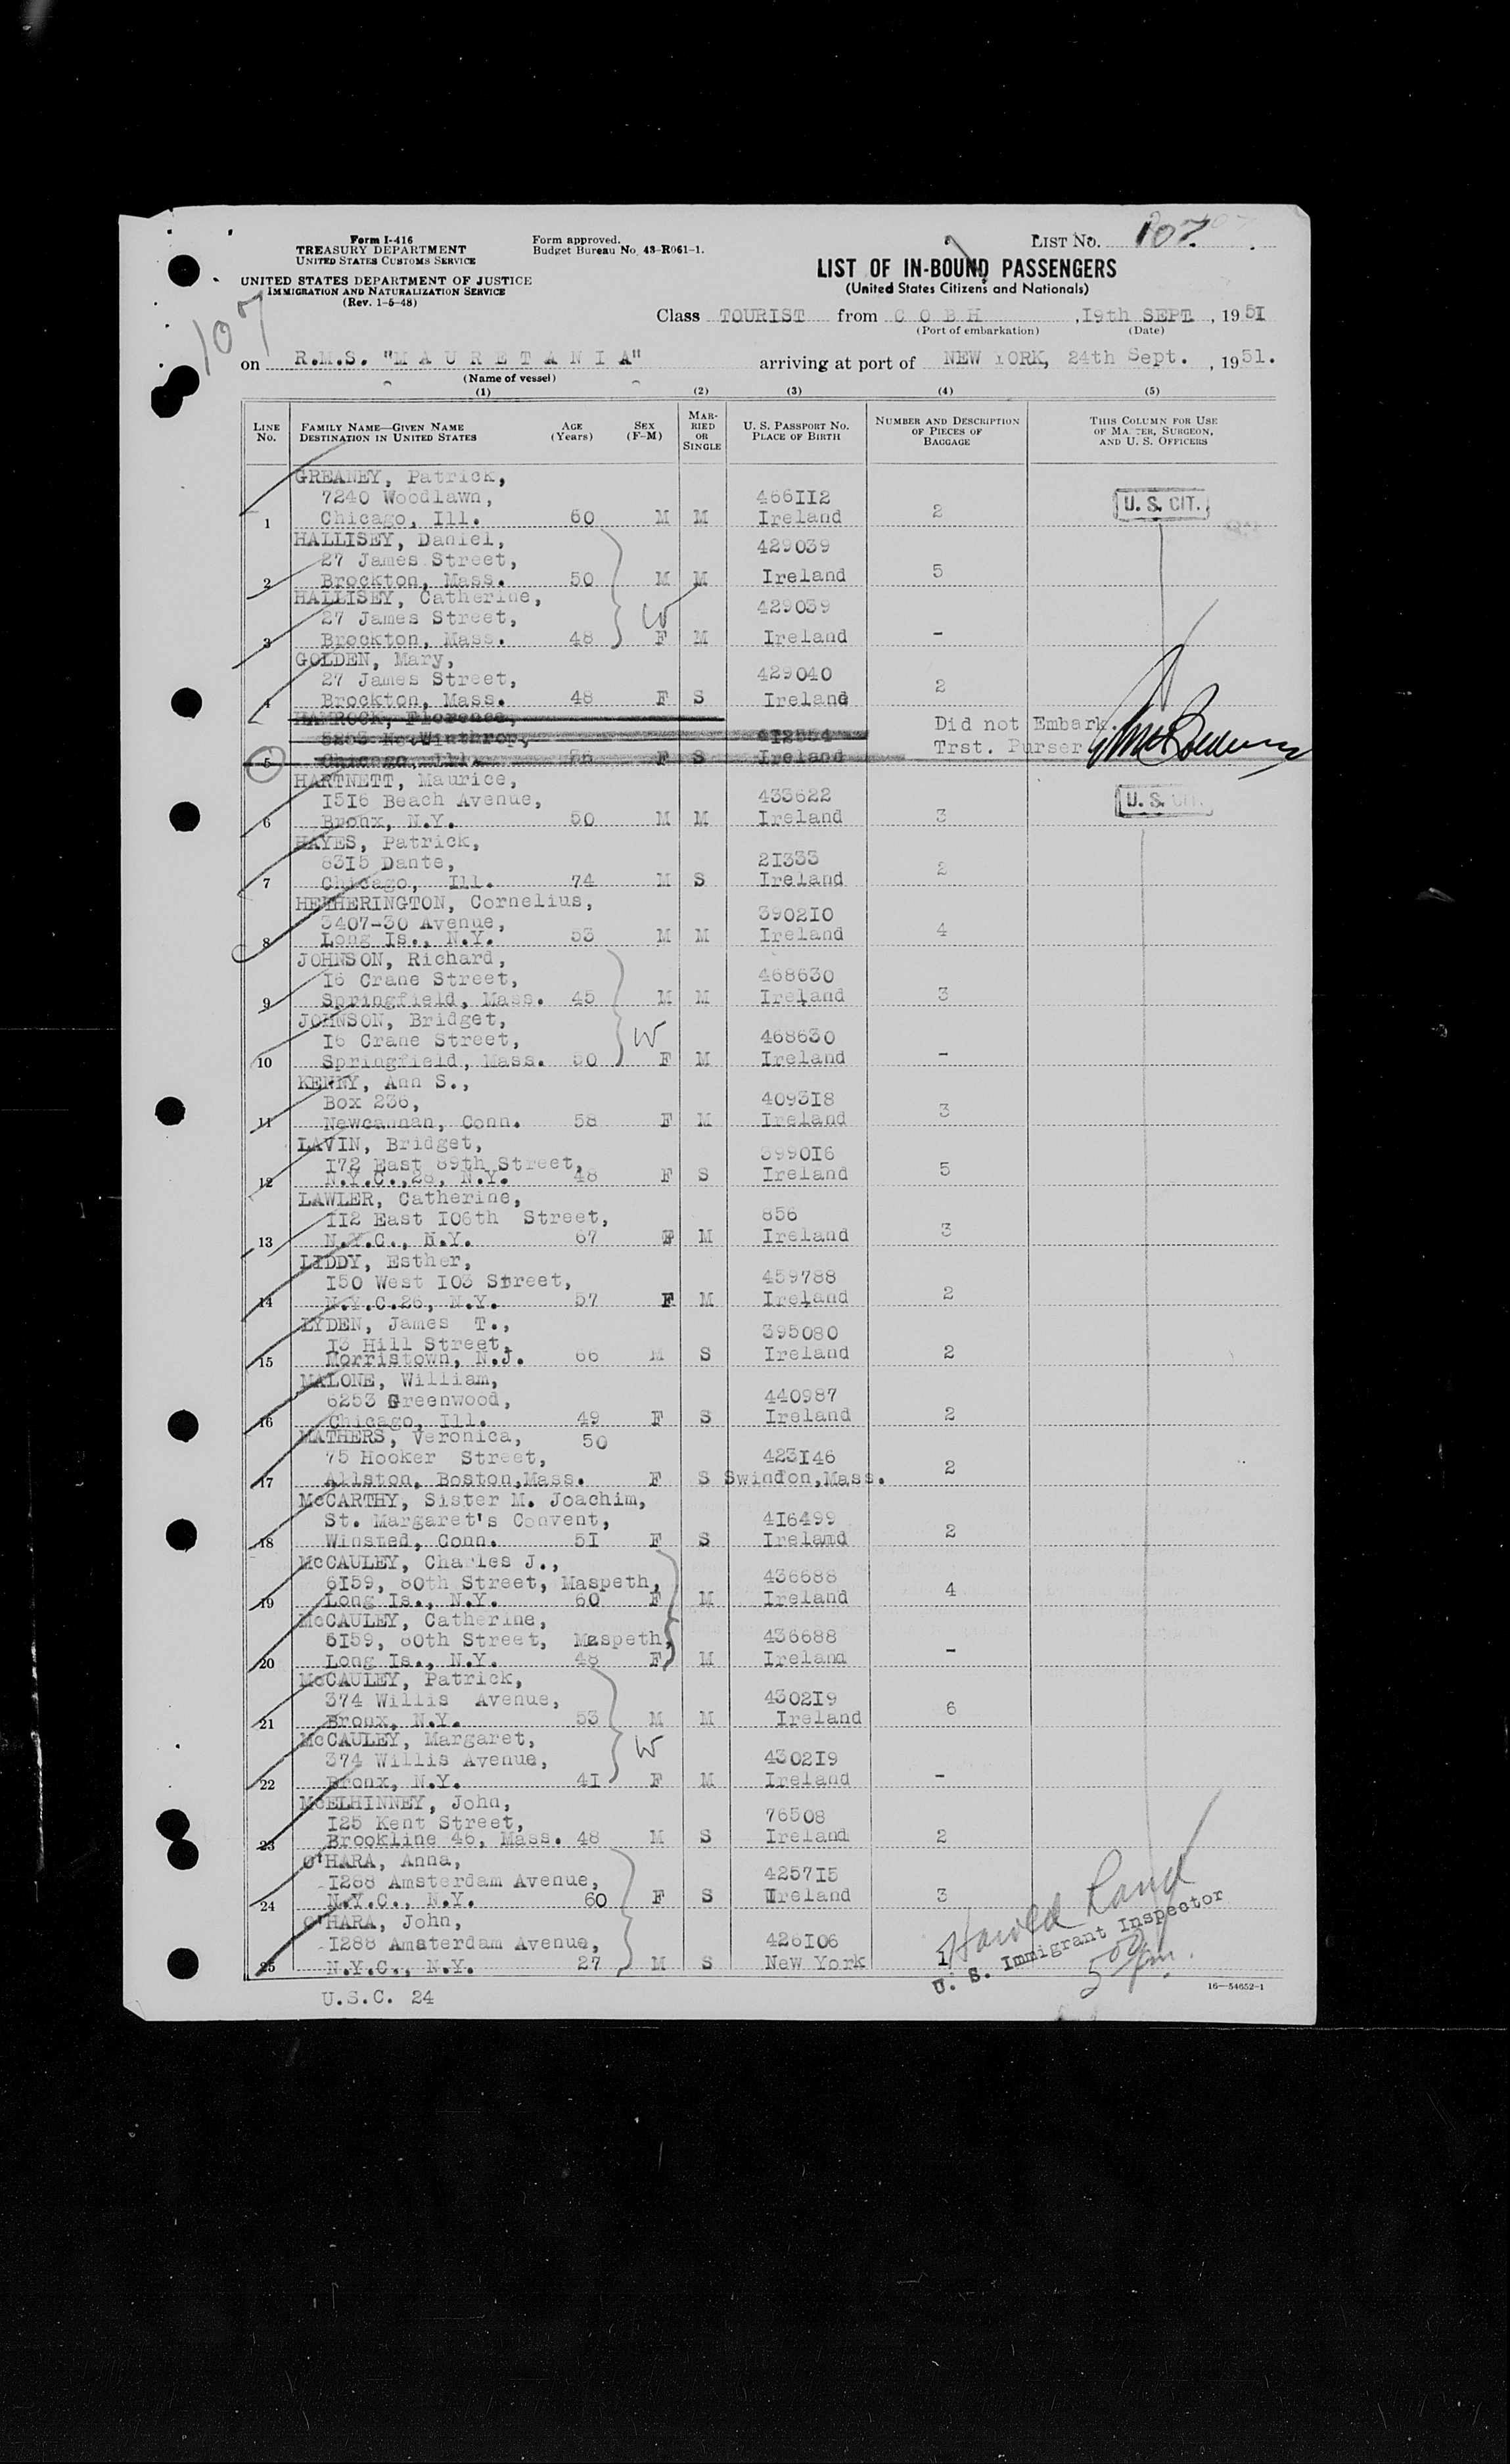 Form I-416
TREASURY DEPARTMENT
UNITED STATES CUSTOMS SERVICE
UNITED STATES DEPARTMENT OF JUSTICE
IMMIGRATION AND NATURALIZATION SERVICE
(Rev. 1-5-48)
Form approved.
Budget Bureau No. 43-R061-1.
LIST No. 107
107
LIST OF IN-BOUND PASSENGERS
(United States Citizens and Nationals)
Class TOURIST from C O B H , 19th SEPT. , 1951
(Port of embarkation) (Date)
on R.M.S. "M A U R E T A N I A" arriving at port of NEW YORK, 24th Sept. , 1951.
(Name of vessel)
(1) (2) (3) (4) (5)
LINE No. FAMILY NAME—GIVEN NAME DESTINATION IN UNITED STATES AGE (Years) SEX (F-M) MARRIED OR SINGLE U. S. PASSPORT No. PLACE OF BIRTH NUMBER AND DESCRIPTION OF PIECES OF BAGGAGE THIS COLUMN FOR USE OF MASTER, SURGEON, AND U. S. OFFICERS
GREANEY, Patrick,
7240 Woodlawn, 466112
1 Chicago, Ill. 60 M M Ireland 2 U. S. CIT.
HALLISEY, Daniel,
27 James Street, 429039
2 Brockton, Mass. 50 M M Ireland 5
HALLISEY, Catherine,
27 James Street, W 429039
3 Brockton, Mass. 48 F M Ireland -
GOLDEN, Mary,
27 James Street, 429040
4 Brockton, Mass. 48 F S Ireland 2
HAMROCK, Florence, Did not Embark.
Winthrop, 412554 Trst. Purser
5 Chicago, Ill. F S Ireland
HARTNETT, Maurice,
1516 Beach Avenue, 433622
6 Bronx, N.Y. 50 M M Ireland 3 U. S. CIT.
HAYES, Patrick,
8315 Dante, 21333
7 Chicago, Ill. 74 M S Ireland 2
HETHERINGTON, Cornelius,
3407-30 Avenue, 390210
8 Long Is., N.Y. 53 M M Ireland 4
JOHNSON, Richard,
16 Crane Street, 468630
9 Springfield, Mass. 45 M M Ireland 3
JOHNSON, Bridget,
16 Crane Street, W 468630
10 Springfield, Mass. 50 F M Ireland -
KENNY, Ann S.,
Box 236, 409318
11 Newcannan, Conn. 58 F M Ireland 3
LAVIN, Bridget,
172 East 89th Street, 399016
12 N.Y.C.,28, N.Y. 48 F S Ireland 5
LAWLER, Catherine,
112 East 106th Street, 856
13 N.Y.C., N.Y. 67 F M Ireland 3
LIDDY, Esther,
150 West 103 Street, 459788
14 N.Y.C.26, N.Y. 57 F M Ireland 2
LYDEN, James T.,
13 Hill Street, 395080
15 Morristown, N.J. 66 M S Ireland 2
MALONE, William,
6253 Greenwood, 440987
16 Chicago, Ill. 49 F S Ireland 2
MATHERS, Veronica, 50
75 Hooker Street, 423146
17 Allston, Boston,Mass. F S Swindon,Mass. 2
McCARTHY, Sister M. Joachim,
St. Margaret's Convent, 416499
18 Winsted, Conn. 51 F S Ireland 2
McCAULEY, Charles J.,
6159, 80th Street, Maspeth, 436688
19 Long Is., N.Y. 60 F M Ireland 4
McCAULEY, Catherine,
6159, 80th Street, Maspeth, 436688
20 Long Is., N.Y. 48 F M Ireland -
McCAULEY, Patrick,
374 Willis Avenue, 430219
21 Bronx, N.Y. 53 M M Ireland 6
McCAULEY, Margaret,
374 Willis Avenue, W 430219
22 Bronx, N.Y. 41 F M Ireland -
McELHINNEY, John,
125 Kent Street, 76508
23 Brookline 46, Mass. 48 M S Ireland 2
O'HARA, Anna,
1288 Amsterdam Avenue, 425715
24 N.Y.C., N.Y. 60 F S Ireland 3
O'HARA, John,
1288 Amsterdam Avenue, 426106
25 N.Y.C., N.Y. 27 M S New York 1
Harold Rand
U. S. Immigrant Inspector
500 pm.
U.S.C. 24
16—54652-1